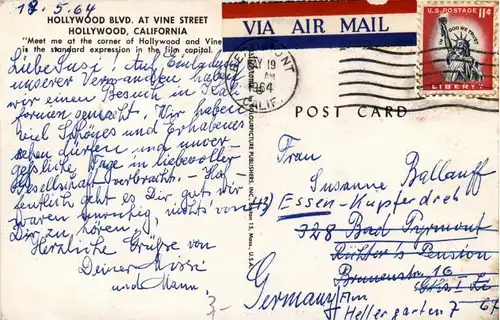 18.5.64
HOLLYWOOD BLVD. AT VINE STREET
HOLLYWOOD, CALIFORNIA
"Meet me at the corner of Hollywood and Vine"
is the standard expression in the film capital.
Liebe Susi! Auf Einladung
unserer Verwandten haben
wir einen Besuch in Kali-
fornien gemacht. Wir haben
viel Schönes und Erhabenes
sehen dürfen und unver-
gessliche Tage in liebevoller
Gesellschaft verbracht. Hof-
fentlich geht es Dir gut, wir
waren unruhig nichts von
Dir zu hören.
Herzliche Grüße von
Deiner
und Mann.
3-
VIA AIR MAIL
MAY 19
AM
1964
CALIF.
U.S. POSTAGE 11¢
IN GOD WE TRUST
LIBERTY
POST CARD
Frau
Susanne Ballauff
(43) Essen-Kupferdreh
328 Bad Pyrmont
Richter's Pension
Brunnenstr. 16
Germany Am
Hellergarten 7